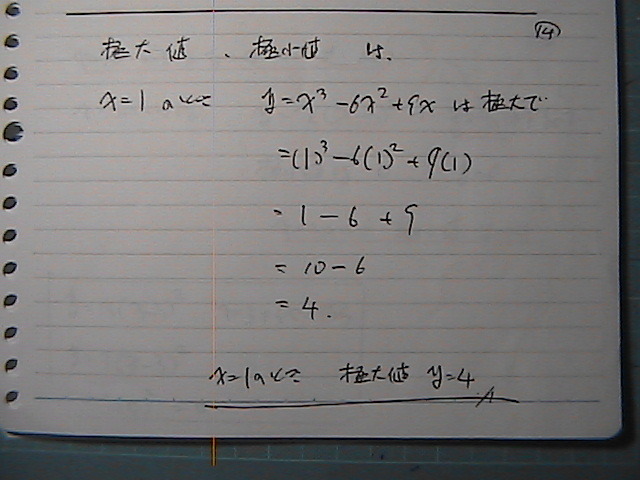 ⑭
極大値、極小値 は、
x=1 のとき y=x³-6x²+9x は 極大で
=(1)³-6(1)²+9(1)
= 1-6+9
= 10-6
= 4.
x=1のとき 極大値 y=4